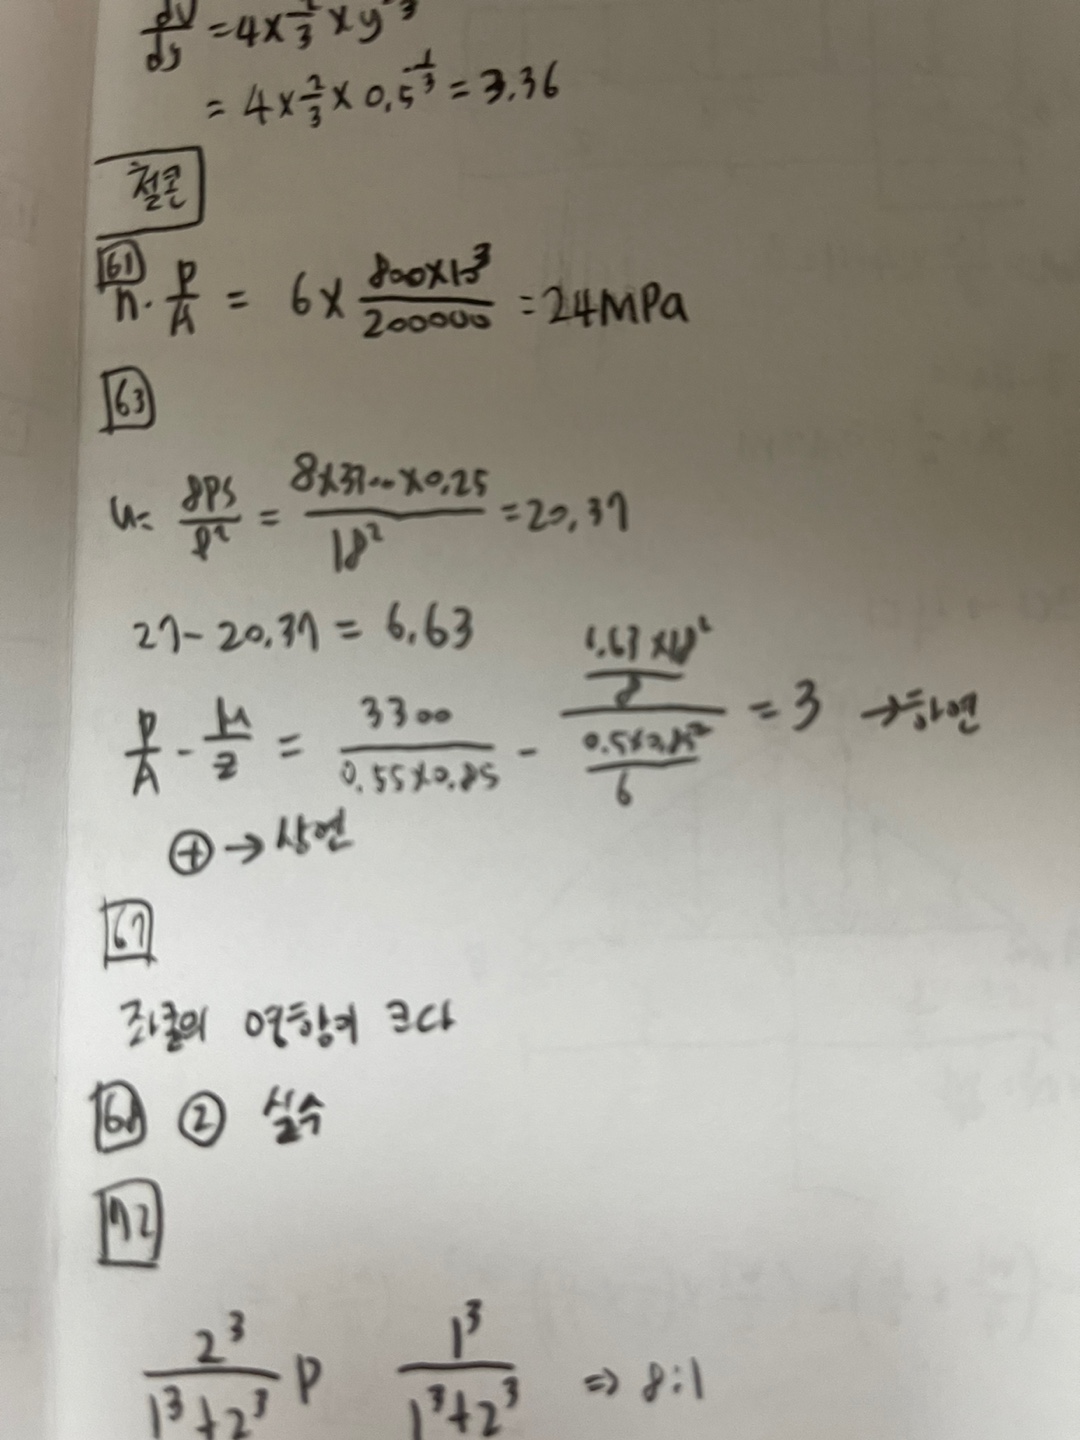 dv/dy = 4 × 2/3 × y^-1/3
= 4 × 2/3 × 0.5^-1/3 = 3.36
철콘
61
n · P/A = 6 × 800×10³/200000 = 24MPa
63
u = 8PS/l² = 8×3300×0.25/18² = 20.37
27 - 20.37 = 6.63
P/A - M/Z = 3300/0.55×0.85 - (6.63×18²/8)/(0.5×0.85²/6) = 3 → 하연
⊕ → 상연
67
좌굴의 영향이 크다
68 ② 실수
72
2³/1³+2³ P 1³/1³+2³ ⇒ 8:1